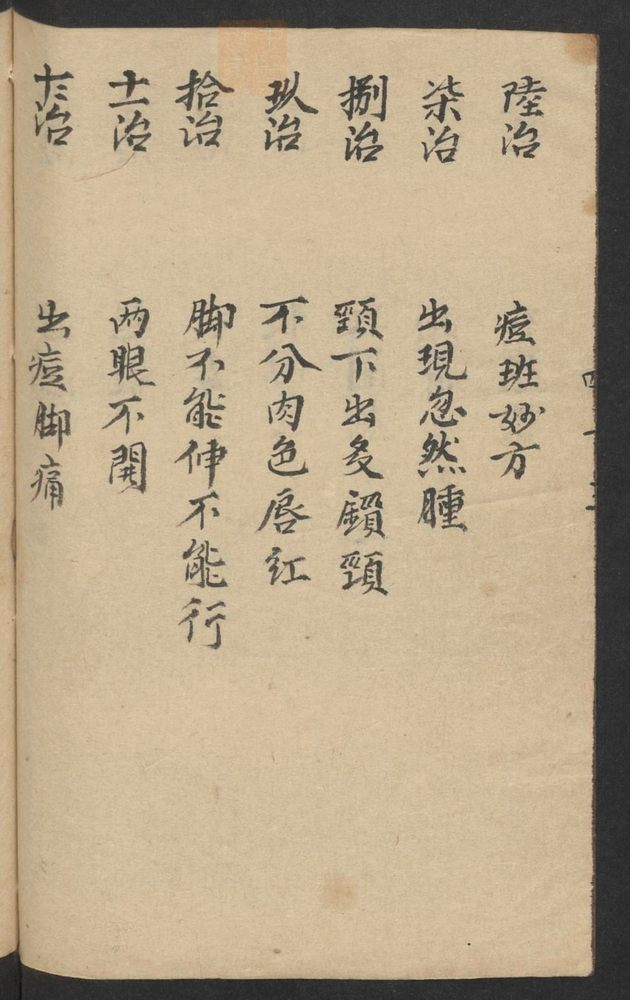 陸治 痘班妙方
柒治 出現忽然腫
捌治 頸下出多鎖頸
玖治 不分肉色唇紅
拾治 脚不能伸不能行
十一治 両眼不開
十二治 出痘脚痛